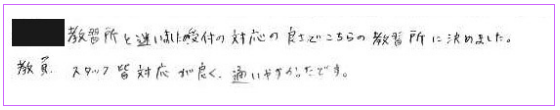 教習所と迷いました受付の対応の良さでこちらの教習所に決めました。
教員、スタッフ皆対応が良く、通いやすかったです。